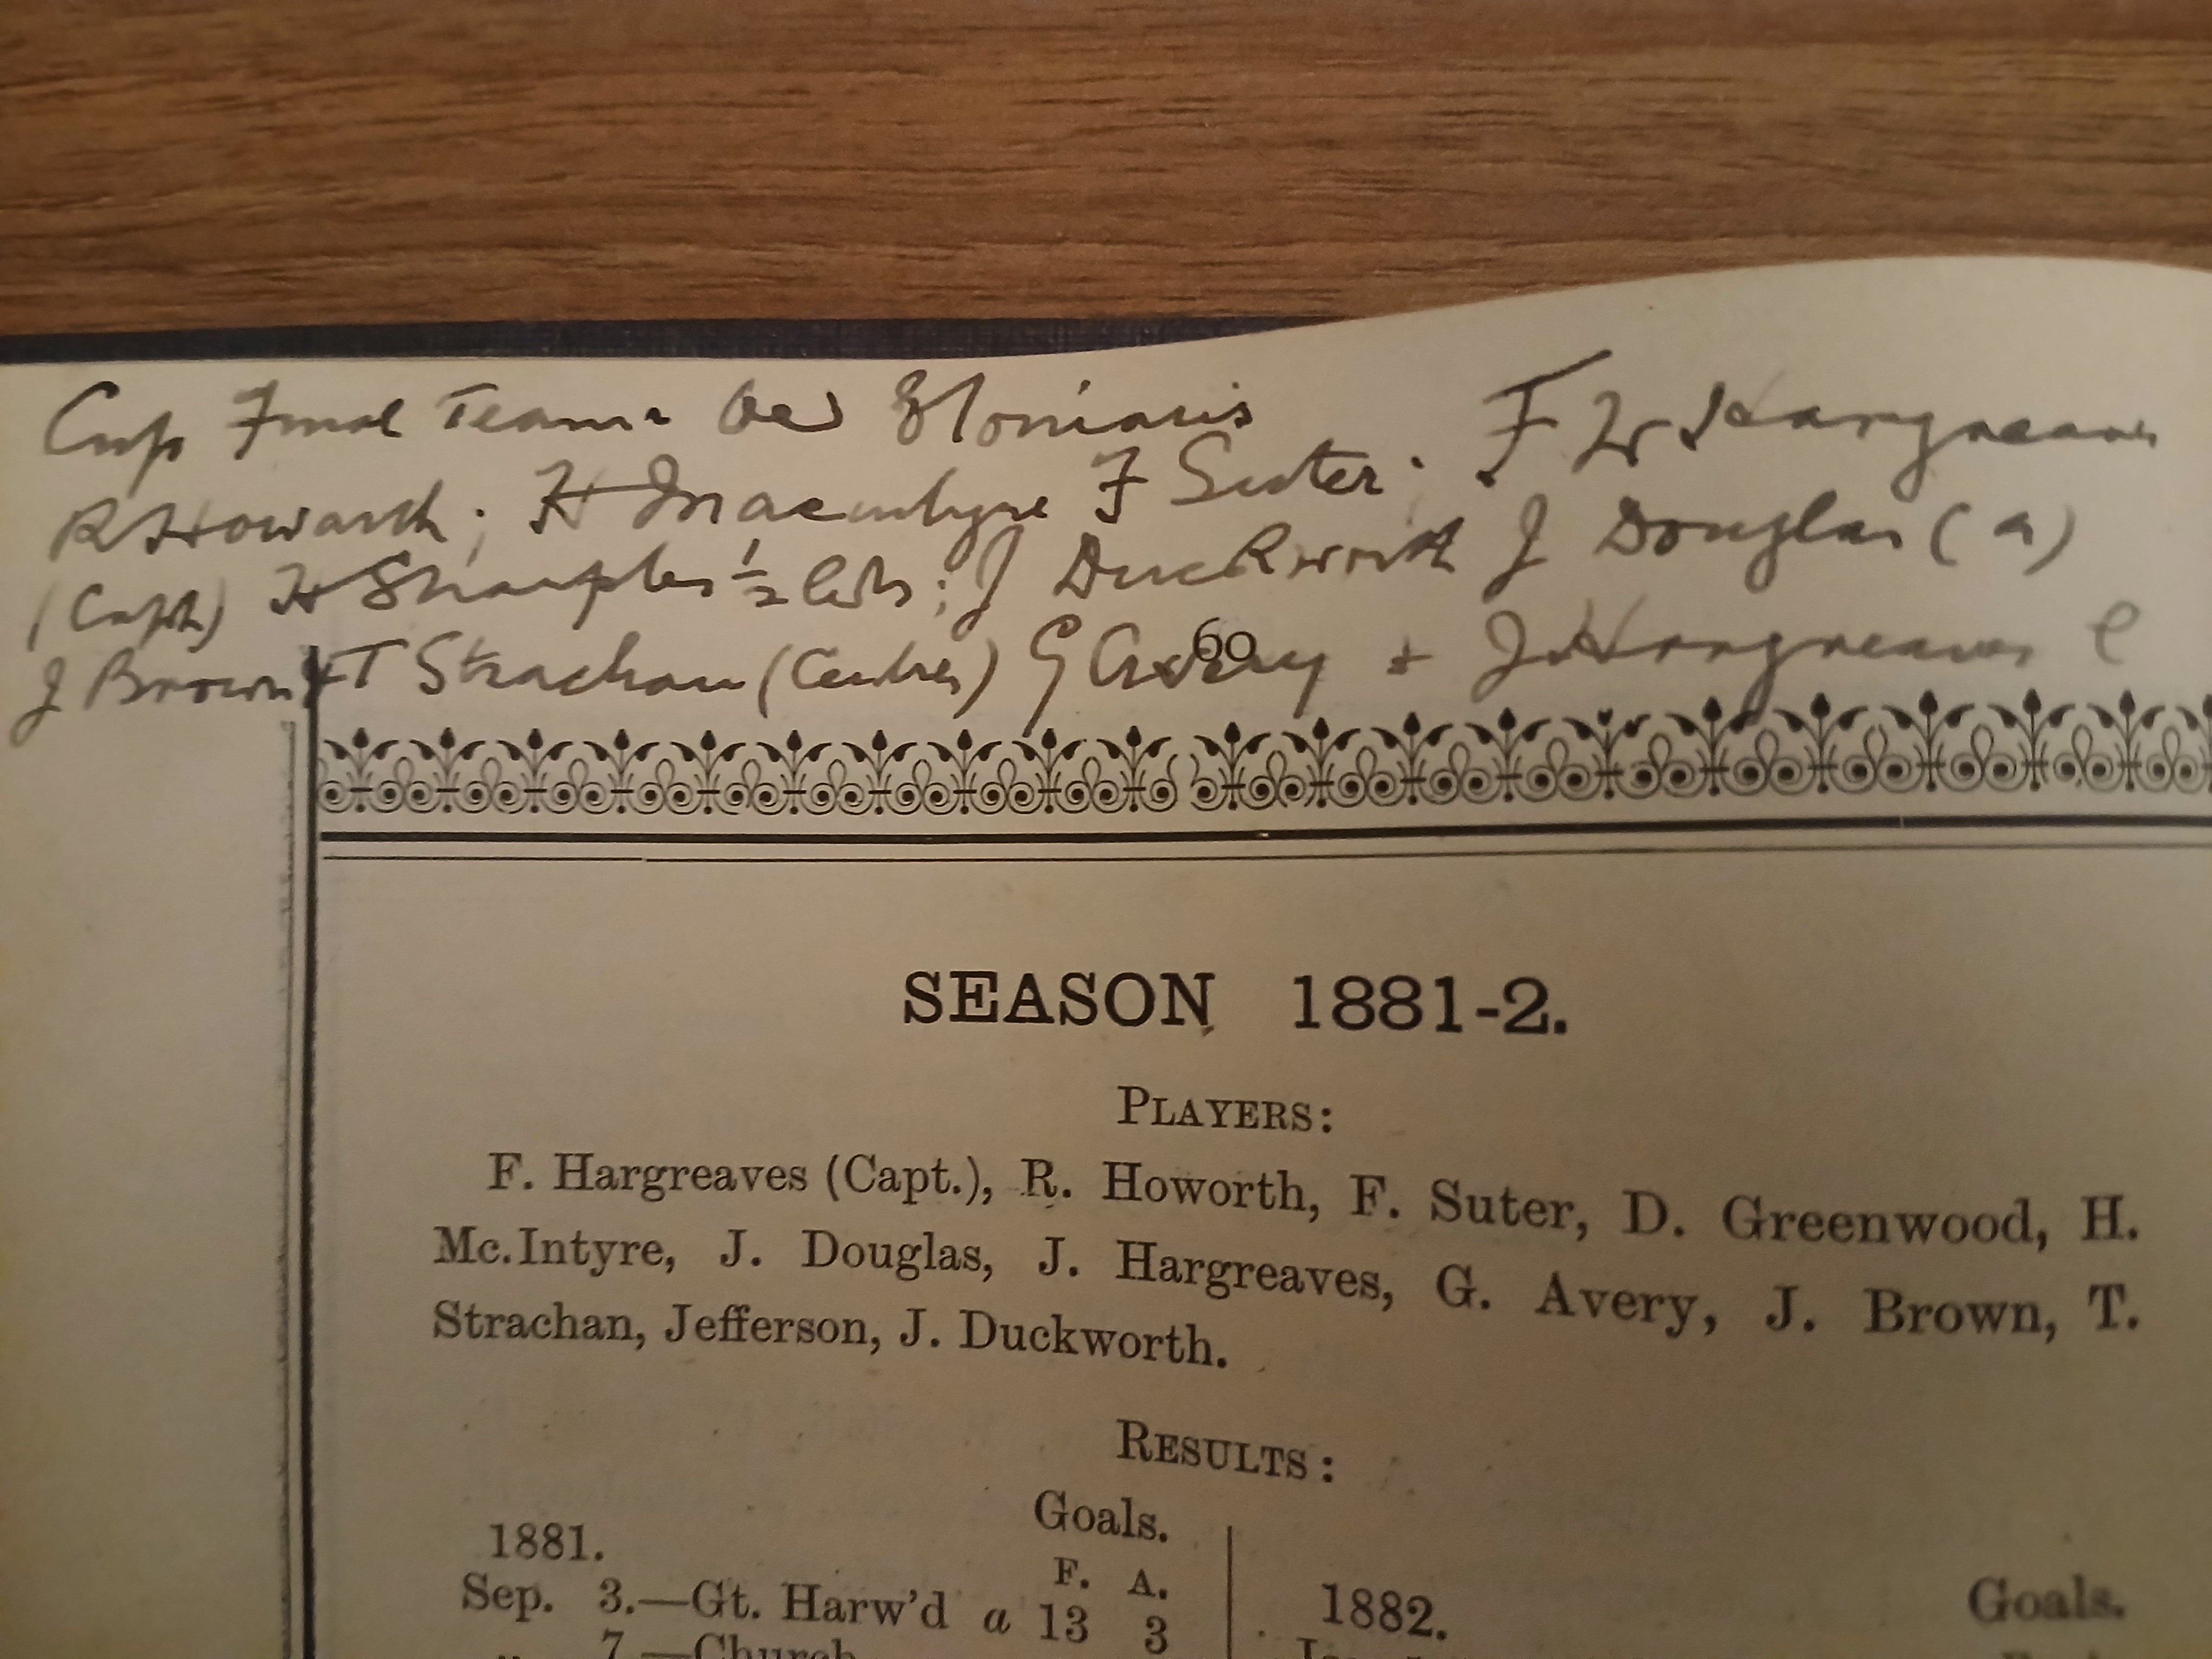 Cup Final Team. Old Etonians
R Howarth; H Macintyre F Suter. F W Hargreaves
(Capt) H Sharples ½ backs; J Duckworth J Douglas (a)
J Brown & T Strachan (Centres) G Avery + J Hargreaves
60
SEASON 1881-2.
PLAYERS:
F. Hargreaves (Capt.), R. Howorth, F. Suter, D. Greenwood, H.
Mc.Intyre, J. Douglas, J. Hargreaves, G. Avery, J. Brown, T.
Strachan, Jefferson, J. Duckworth.
RESULTS:
Goals.
1881. F. A.
Sep. 3.—Gt. Harw'd a 13 3
7.—Church
1882.
Goals.